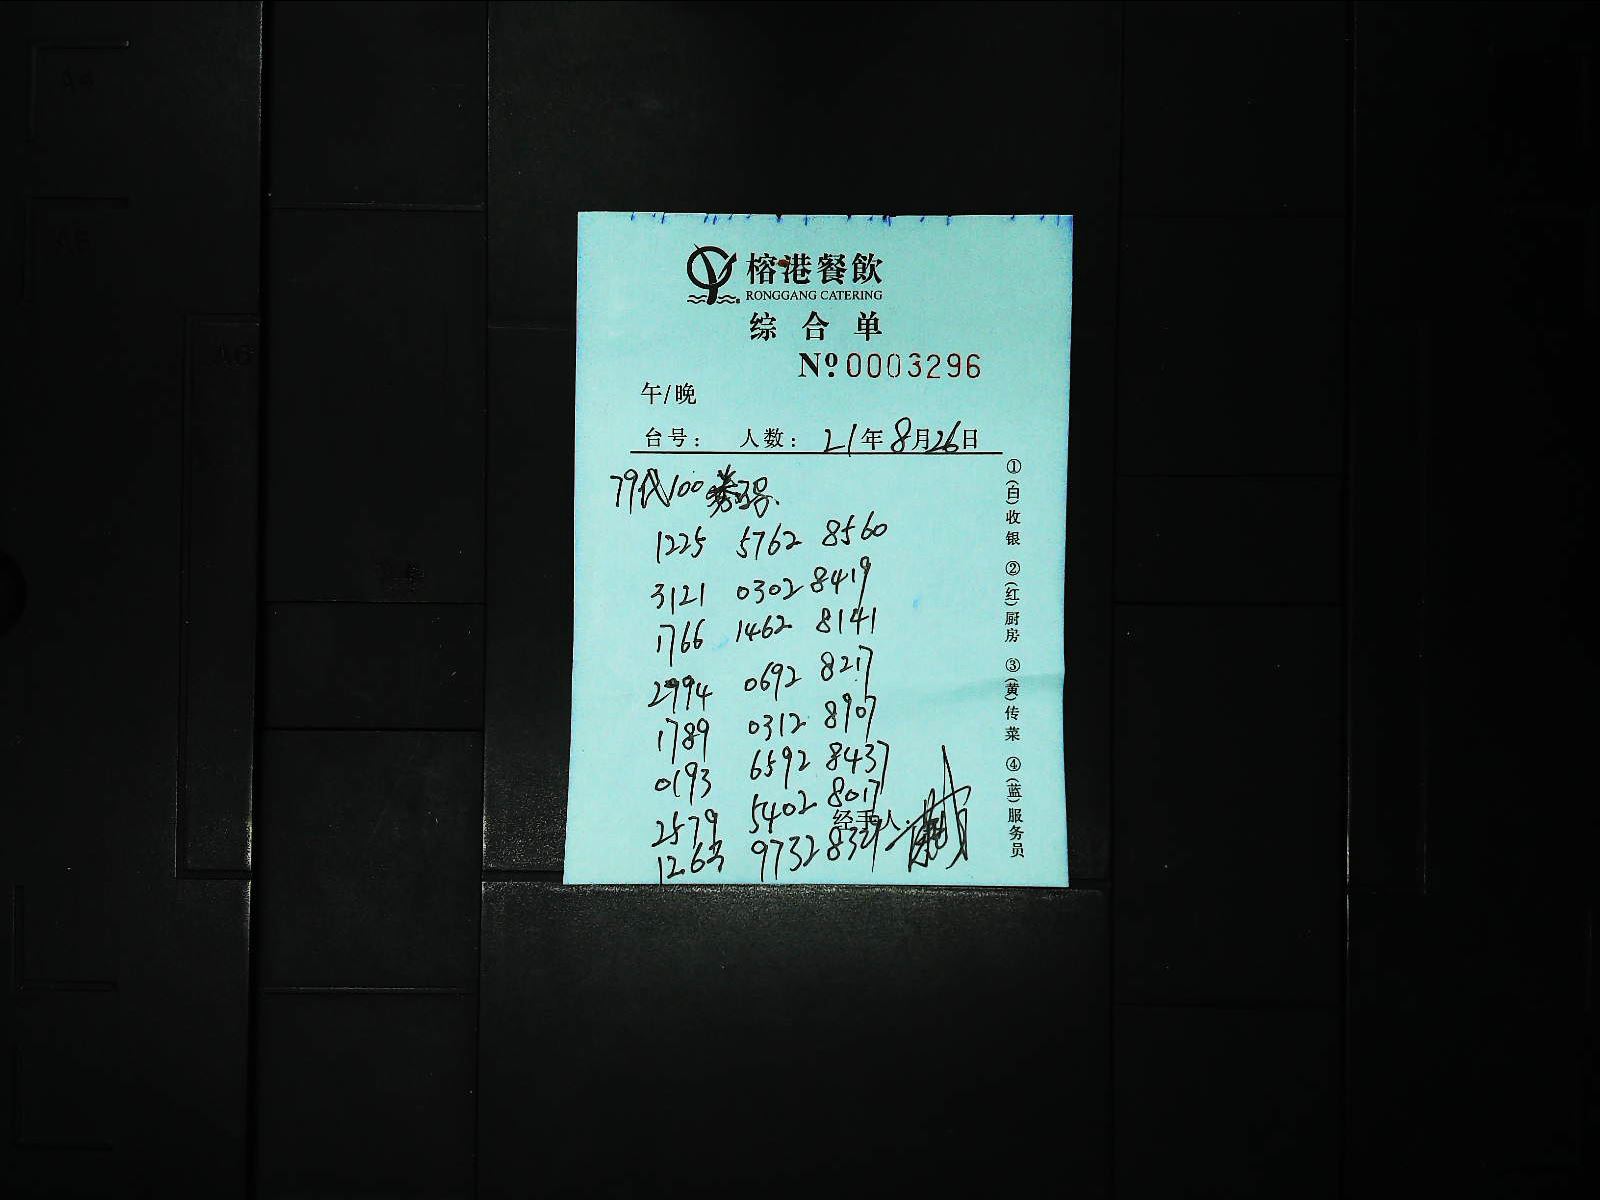 榕港餐飲
RONGGANG CATERING
综合单
Nº 0003296
午/晚
台号: 人数: 21年8月26日
79代100券号.
1225 5762 8560
3121 0302 8419
1766 1462 8141
2994 0692 8217
1789 0312 8907
0193 6592 8437
2579 5402 8017
经手人:
1263 9732 8339
①(白)收银 ②(红)厨房 ③(黄)传菜 ④(蓝)服务员